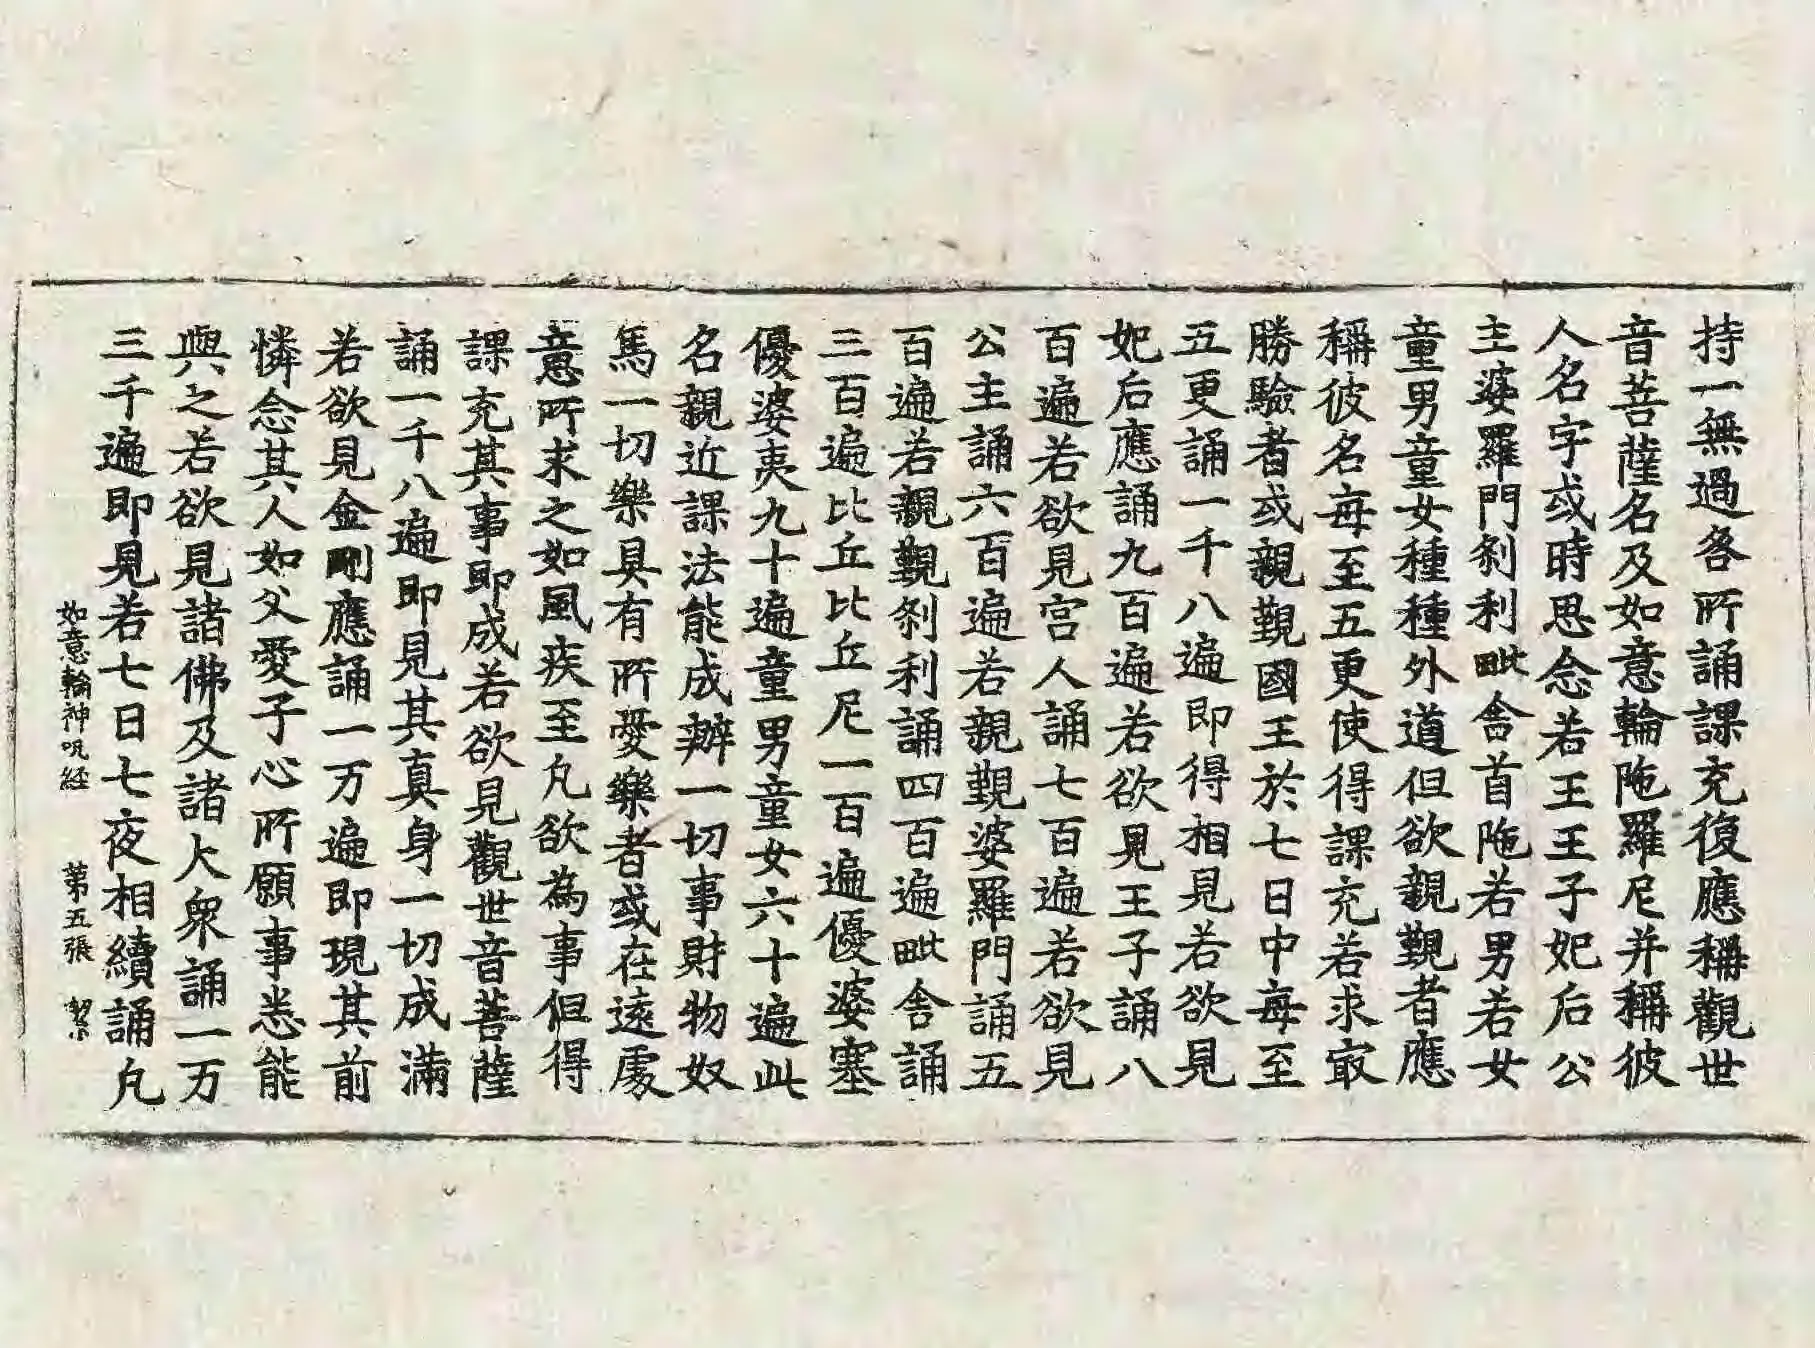 持一無過各所誦課充復應稱觀世
音菩薩名及如意輪陁羅尼并稱彼
人名字或時思念若王王子妃后公
主婆羅門刹利毗舍首陁若男若女
童男童女種種外道但欲親覲者應
稱彼名每至五更使得課充若求㝡
勝驗者或親覲國王於七日中每至
五更誦一千八遍即得相見若欲見
妃后應誦九百遍若欲見王子誦八
百遍若欲見宮人誦七百遍若欲見
公主誦六百遍若親覲婆羅門誦五
百遍若親覲刹利誦四百遍毗舍誦
三百遍比丘比丘尼一百遍優婆塞
優婆夷九十遍童男童女六十遍此
名親近課法能成辦一切事財物奴
馬一切樂具有所愛樂者或在遠處
意所求之如風疾至凡欲為事但得
課充其事即成若欲見觀世音菩薩
誦一千八遍即見其真身一切成滿
若欲見金剛應誦一万遍即現其前
憐念其人如父愛子心所願事悉能
與之若欲見諸佛及諸大衆誦一万
三千遍即見若七日七夜相續誦凡
如意輪神呪経 第五張